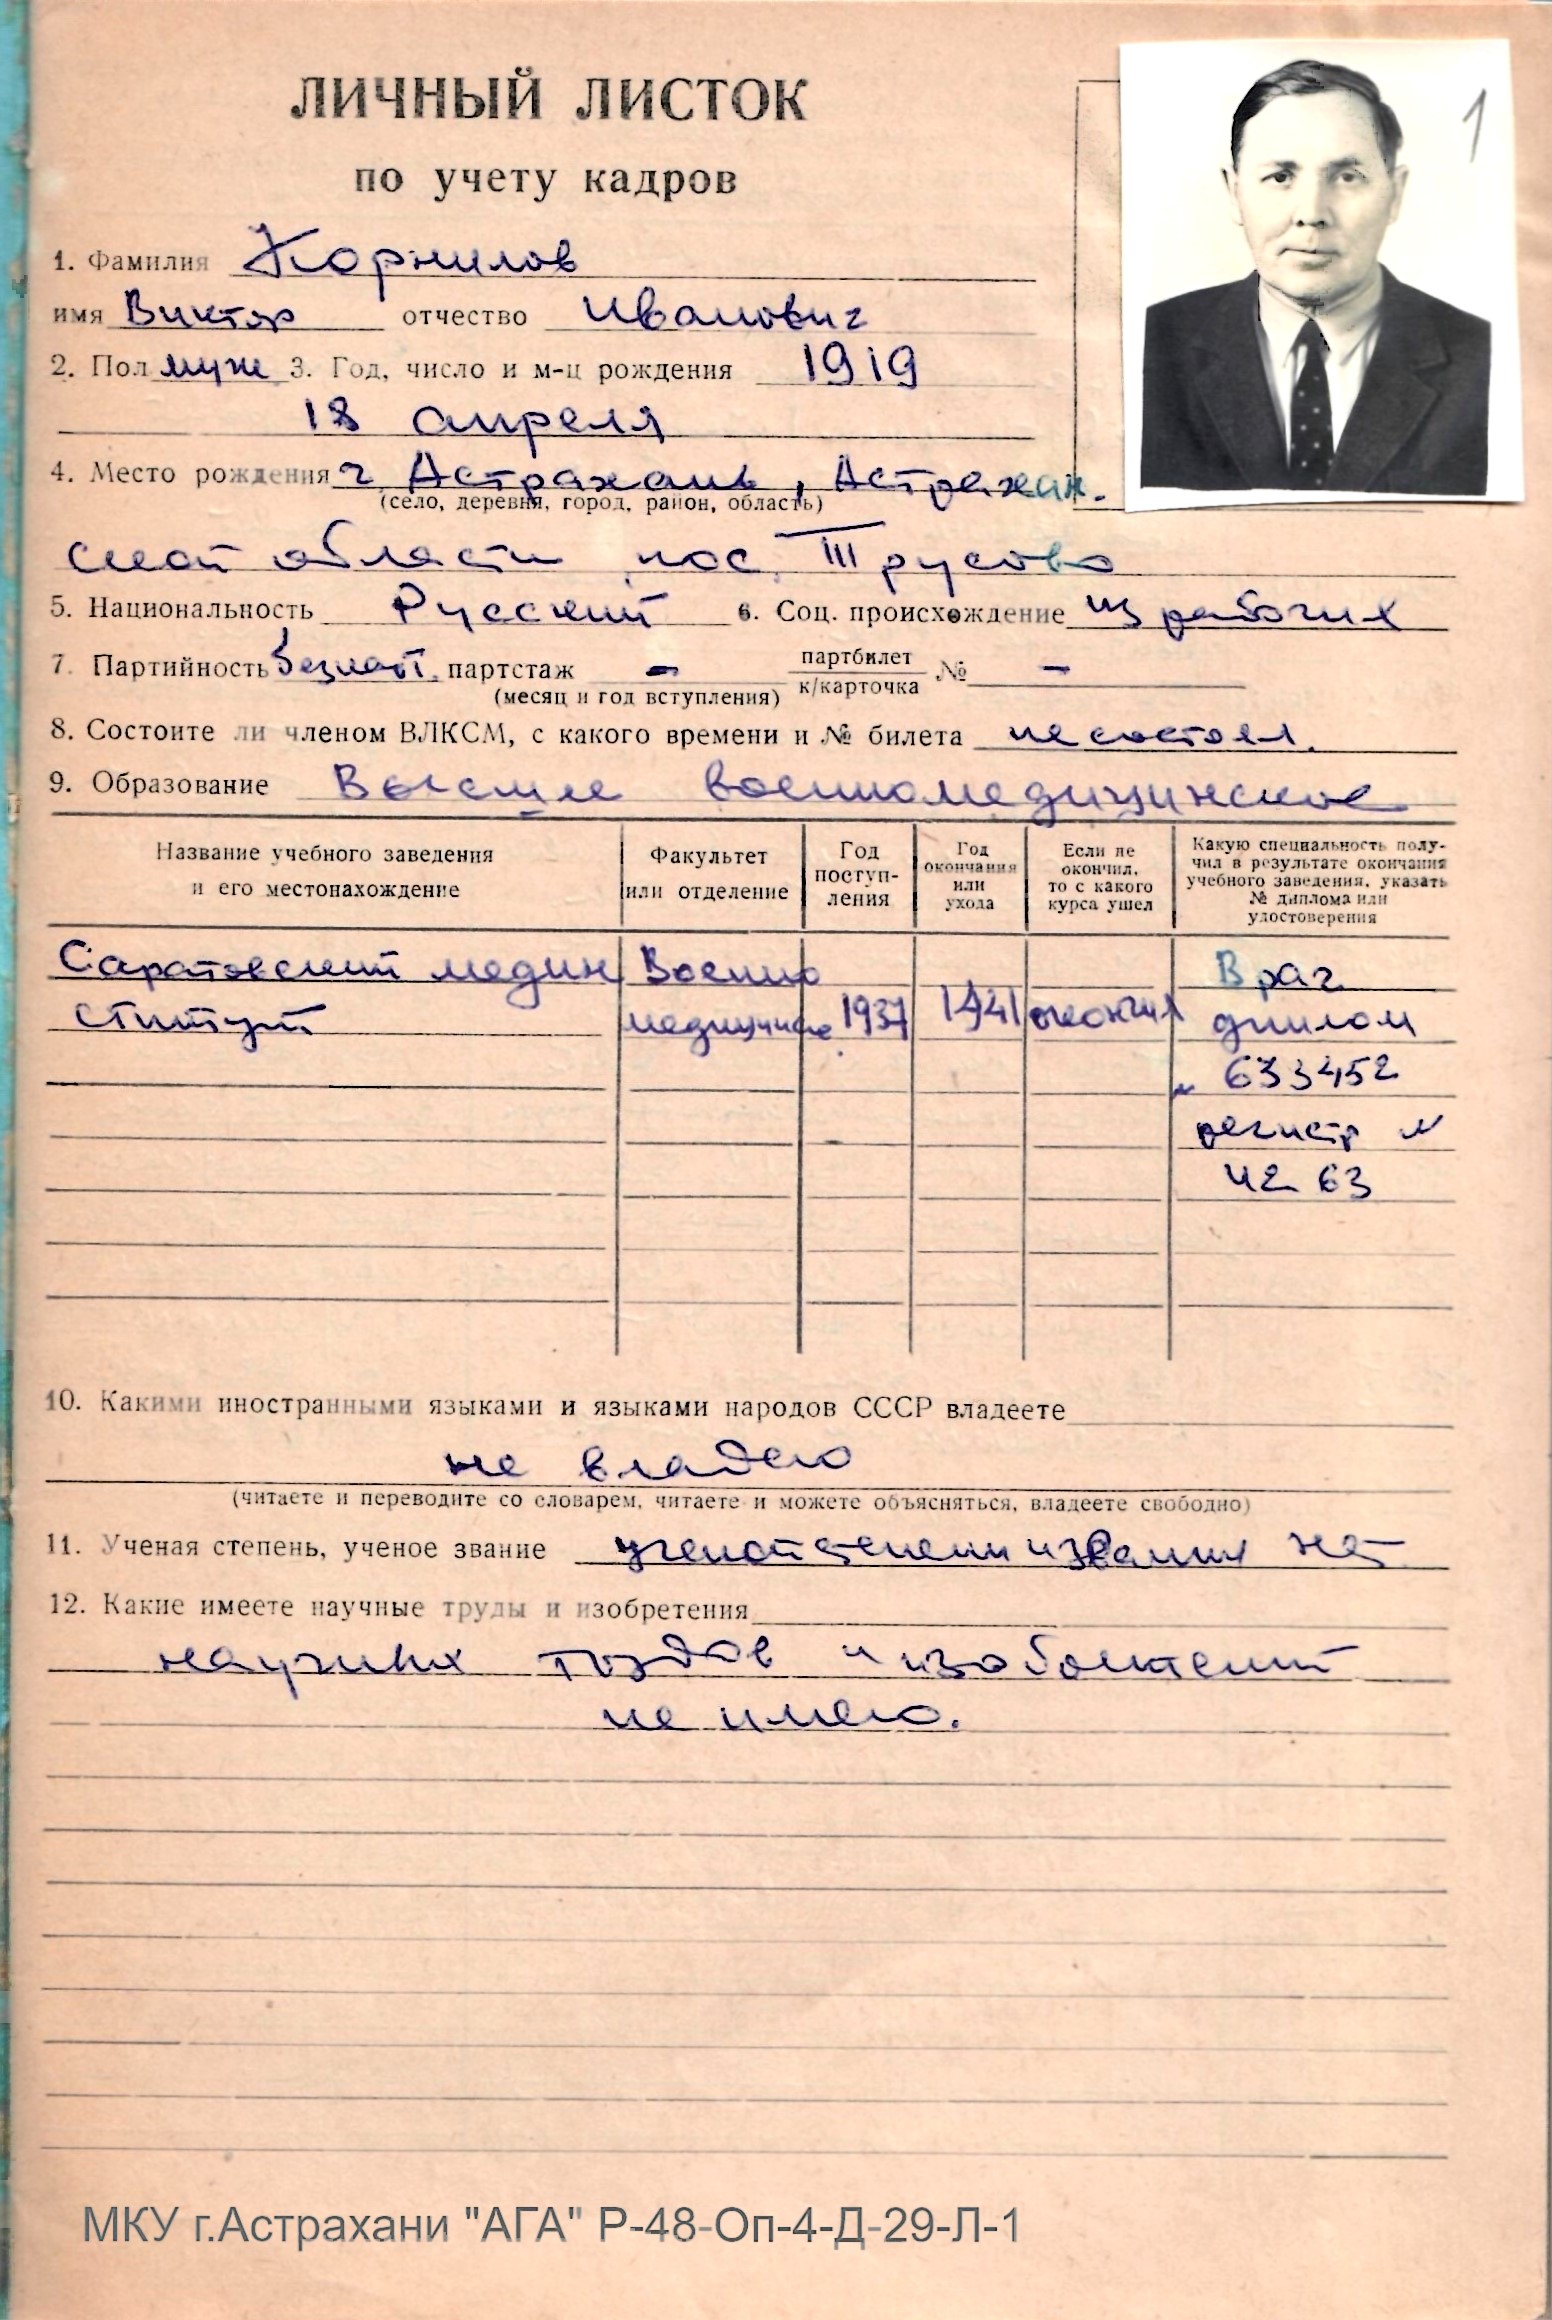 ЛИЧНЫЙ ЛИСТОК
1
по учету кадров
1. Фамилия Корнилов
имя Виктор отчество Иванович
2. Пол муж 3. Год, число и м-ц рождения 1919
18 апреля
4. Место рождения г Астрахань, Астрахан.
(село, деревня, город, район, область)
ской области пос. Трусово
5. Национальность Русский 6. Соц. происхождение из рабочих
7. Партийность безпарт. партстаж – партбилет
к/карточка № –
(месяц и год вступления)
8. Состоите ли членом ВЛКСМ, с какого времени и № билета не состоял.
9. Образование Высшее военномедицинское
Название учебного заведения
и его местонахождение
Факультет
или отделение
Год
поступ-
ления
Год
окончания
или
ухода
Если не
окончил,
то с какого
курса ушел
Какую специальность полу-
чил в результате окончания
учебного заведения, указать
№ диплома или
удостоверения
Саратовский медин
ститут
Военно
медицинс
1937
1941
окончил
Врач
диплом
№ 633452
регистр №
4263
10. Какими иностранными языками и языками народов СССР владеете
не владею
(читаете и переводите со словарем, читаете и можете объясняться, владеете свободно)
11. Ученая степень, ученое звание ученой степени и звания нет
12. Какие имеете научные труды и изобретения
научных трудов и изобретений
не имею.
МКУ г.Астрахани "АГА" Р-48-Оп-4-Д-29-Л-1